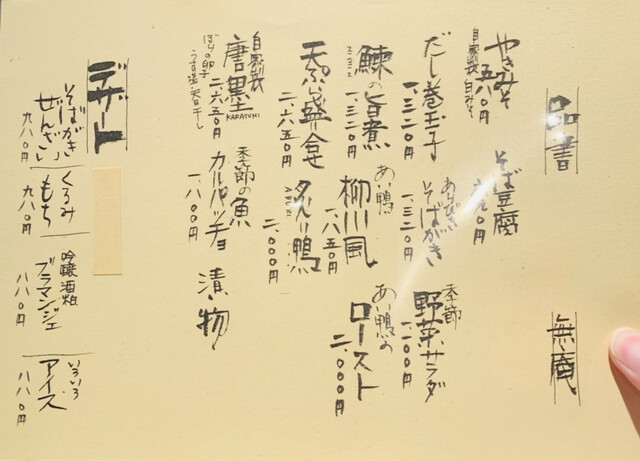 品書
無庵
やきみそ
五八〇円
自家製白みそ
そば豆腐
円
だし巻玉子
一、三二〇円
あらびき
そばがき
一、三二〇円
季節
野菜サラダ
一、一〇〇円
鰊の旨煮
一、三二〇円
あい鴨
柳川風
一、六五〇円
あい鴨の
ロースト
二、〇〇〇円
天ぷら盛合せ
二、六五〇円
炙り鴨
ABURI
二、〇〇〇円
自家製
唐墨
KARASUMI
二、六五〇円
ぼらの卵子
うす塩・天日干し
季節の魚
カルパッチョ
一、八〇〇円
漬け物
デザート
そばがき
ぜんざい
九八〇円
くるみ
もち
九八〇円
吟醸酒粕
ブラマンジェ
八八〇円
いろいろ
アイス
八八〇円